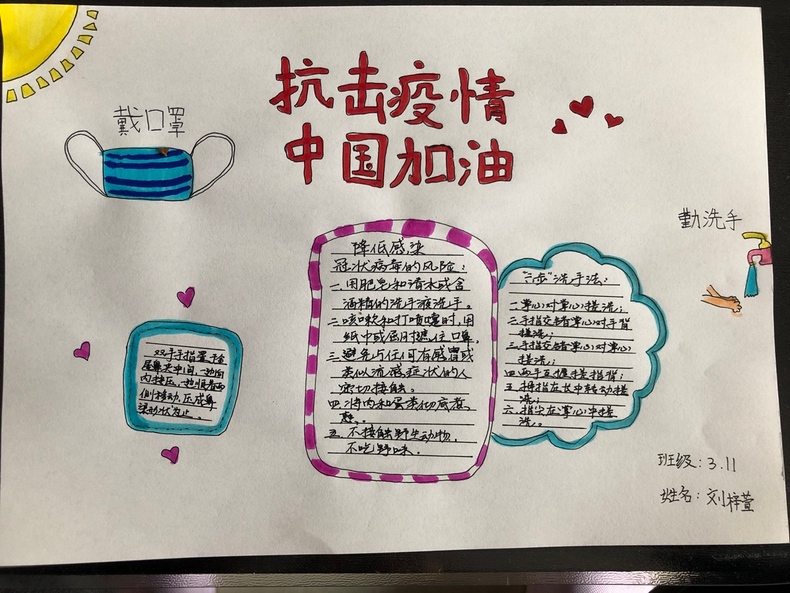 抗击疫情
中国加油
戴口罩
勤洗手
双手手指置于金
属鼻夹中间,一边向
内按压,一边顺着两
侧移动,压成鼻
梁形状为止。
降低感染
冠状病毒的风险:
一.用肥皂和清水或含
酒精的洗手液洗手。
二.咳嗽和打喷嚏时,用
纸巾或屈肘遮住口鼻。
三.避免与任何有感冒或
类似流感症状的人
密切接触。
四.将肉和蛋类彻底煮
熟。
五.不接触野生动物,
不吃野味。
“六步”洗手法:
一.掌心对掌心搓洗;
二.手指交错掌心对手背
搓洗;
三.手指交错掌心对掌心
搓洗;
四.两手互握搓指背;
五.拇指在掌中转动搓
洗;
六.指尖在掌心中搓
洗。
班级:3.11
姓名:刘梓萱